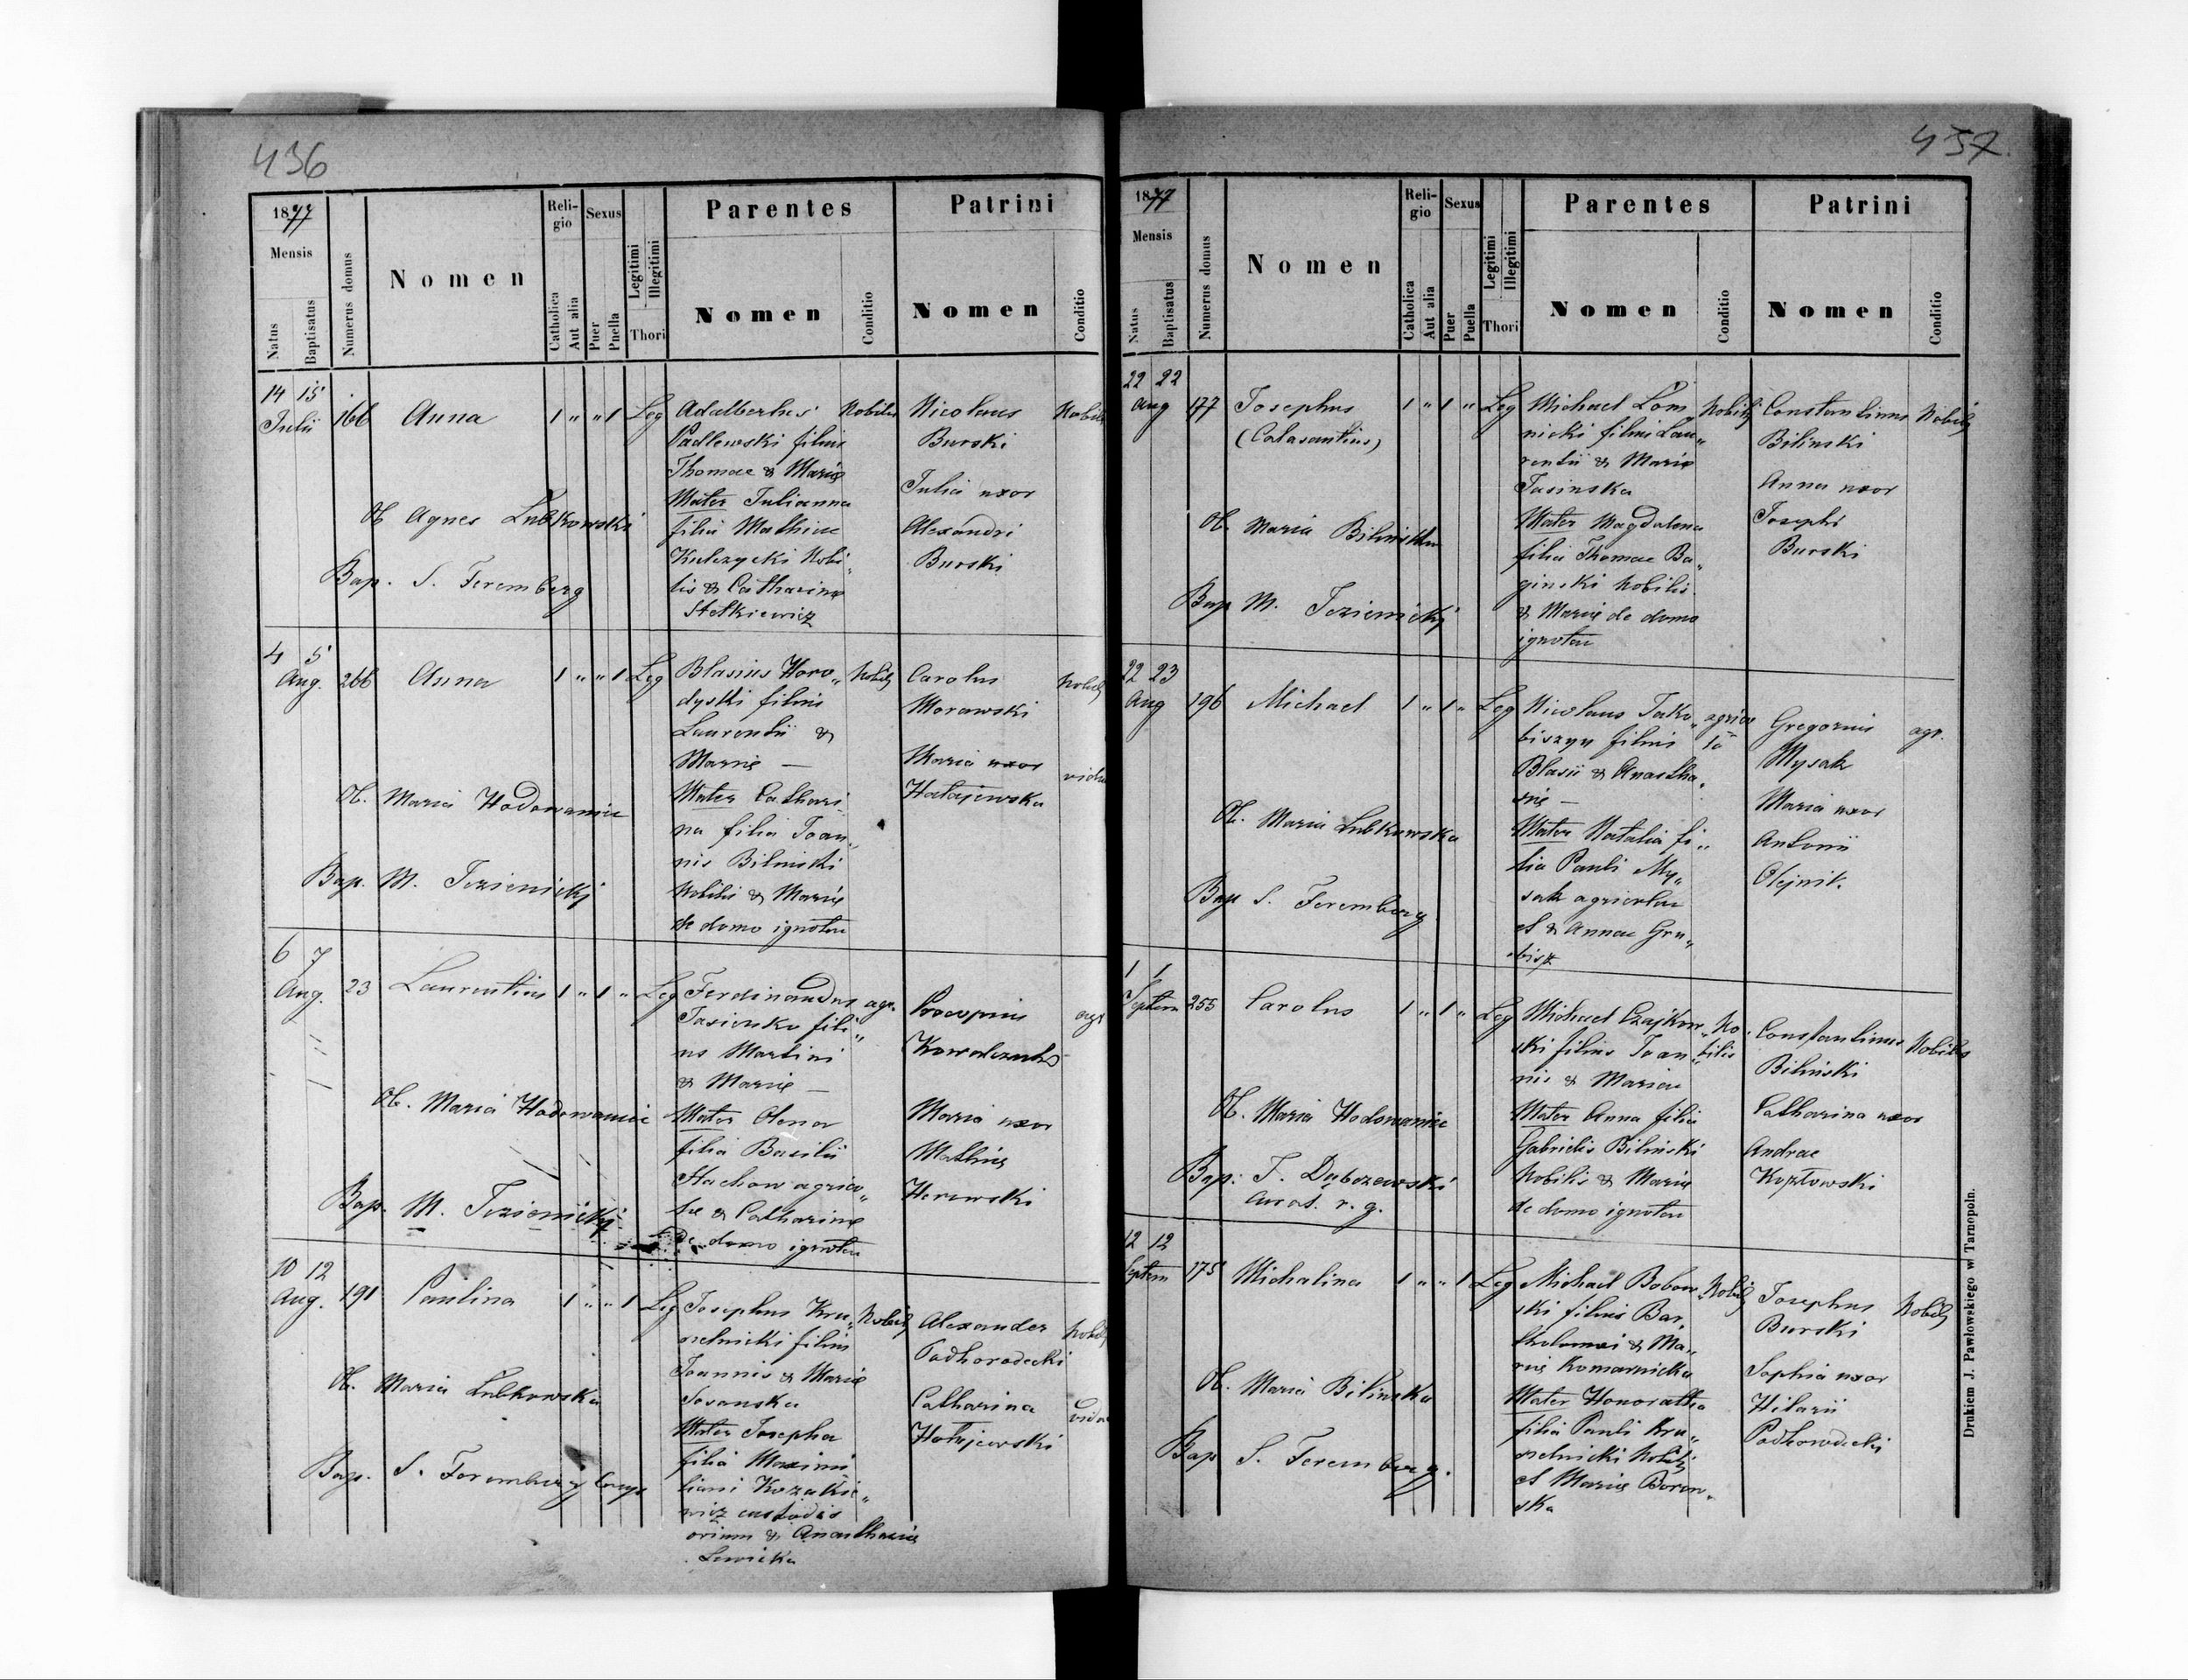 436
1877
Mensis
Natus
Baptisatus
Numerus domus
Nomen
Reli-
gio
Catholica
Aut alia
Sexus
Puer
Puella
Legitimi
Illegitimi
Thori
Parentes
Nomen
Conditio
Patrini
Nomen
Conditio
14 15
Julii
166
Anna
1 " " 1
Leg
Ob Agnes Lubkowski
Bap. S. Feremberg
Adalbertus
Padlewski filius
Thomae & Mariæ
Mater Julianna
filia Mathiae
Kulczycki Nobi„
lis & Catharinæ
Stetkiewicz
Nobilis
Nicolaus
Burski
Julia uxor
Alexandri
Burski
Nobilis
4 5
Aug.
266
Anna
1 " " 1
Leg
Ob. Maria Hodowaniec
Bap. M. Jezienickj
Blasius Horo„
dyski filius
Laurentii &
Mariæ —
Mater Cathari
na filia Joan„
nis Bilinski
Nobilis & Mariæ
de domo ignota
Nobilis
Carolus
Morawski
Maria uxor
Hatajewska
Nobilis
vidua
6 7
Aug.
23
Laurentius
1 " 1 "
Leg
Ob. Maria Hodowaniec
Bap. M. Jezienickj
Ferdinandus
Jasienko fili„
us Martini
& Mariæ —
Mater Olena
filia Basilii
Stachow agrico„
lae & Catharinæ
de domo ignota
agr.
Procopius
Kowalczuk
Maria uxor
Mathiæ
Herowski
agr
10 12
Aug.
191
Paulina
1 " " 1
Leg
Ob. Maria Lubkowska
Bap. S. Feremberg
Josephus Kru„
szelnicki filius
Joannis & Mariæ
Sosanska
Mater Josepha
filia Maximi
liani Kozakie„
wicz custodis
& Anasthasiæ
Lewicka
Nobilis
Alexander
Podhorodecki
Catharina
Hatajewski
Nobilis
vidua
437.
1877
Mensis
Natus
Baptisatus
Numerus domus
Nomen
Reli-
gio
Catholica
Aut alia
Sexus
Puer
Puella
Legitimi
Illegitimi
Thori
Parentes
Nomen
Conditio
Patrini
Nomen
Conditio
22 22
Aug
177
Josephus
(Calasantius)
1 " 1 "
Leg
Ob. Maria Bilinska
Bap M. Jezienickj
Michael Lom
nicki filius Lau„
rentii & Mariæ
Jasinska
Mater Magdalena
filia Thomae Ba„
ginski Nobilis
& Mariæ de domo
ignota
Nobilis
Constantinus
Bilinski
Anna uxor
Josephi
Burski
Nobilis
22 23
Aug
196
Michael
1 " 1 "
Leg
Ob. Maria Lubkowska
Bap S. Feremberg
Nicolaus Jako„
biszyn filius
Blasii & Anastha„
siæ —
Mater Natalia fi„
lia Pauli My„
sak agricolae
& Annae Gru„
bisz
agrico
la
Gregorius
Mysak
Maria uxor
Antonii
Olejnik.
agr.
1 1
Septem
255
Carolus
1 " 1 "
Leg
Ob. Maria Hodowaniec
Bap: J. Dąbczewski
r. g.
Michael Czajkow„
ski filius Joan„
nis & Mariae
Mater Anna filia
Gabrielis Bilinski
Nobilis & Mariæ
de domo ignota
No„
bilis
Constantinus
Bilinski
Catharina uxor
Andreae
Kozłowski
Nobilis
12 12
Septem
175
Michalina
1 " " 1
Leg
Ob. Maria Bilinska
Bap S. Feremberg.
Michael Bobow„
ski filius Bar„
tholomæi & Ma„
riæ Komarnicka
Mater Honoratha
filia Pauli Kru„
szelnicki Nobilis
et Mariæ Borow„
ska
Nobilis
Josephus
Burski
Sophia uxor
Hilarii
Podhorodecki
Nobilis
Drukiem J. Pawłowskiego w Tarnopoln.